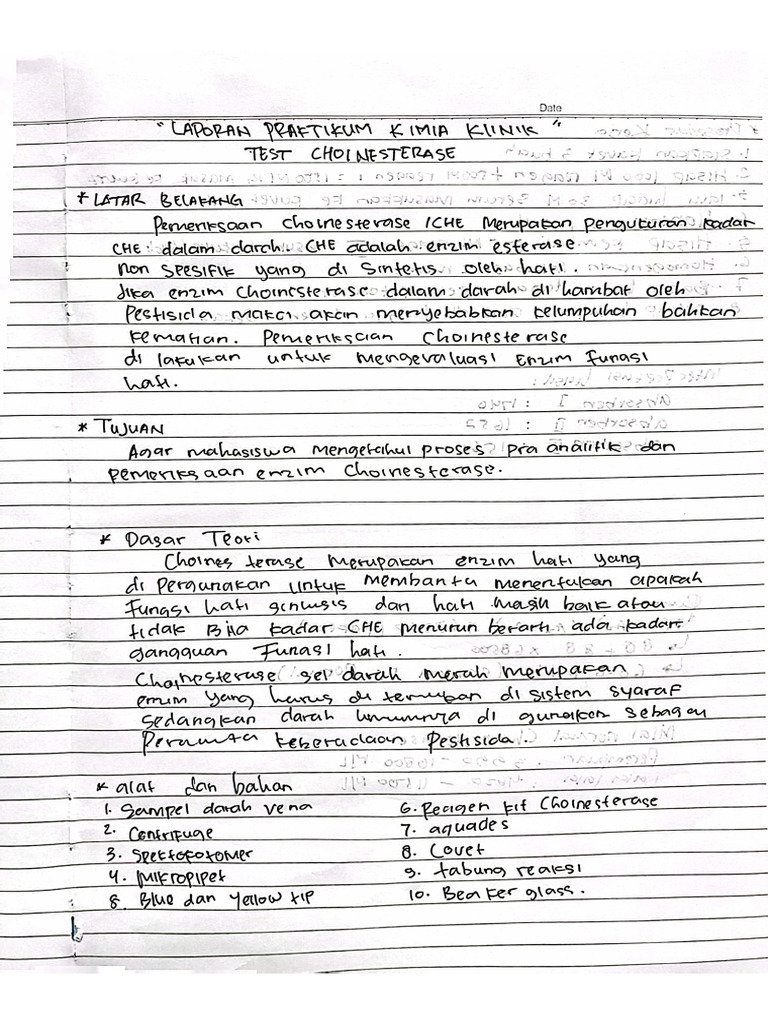 Date
"LAPORAN PRAKTIKUM KIMIA KLINIK"
TEST CHOINESTERASE
* LATAR BELAKANG
Pemeriksaan Choinesterase /CHE Merupakan Pengukuran kadar
CHE dalam darah. CHE adalah enzim esterase
non spesifik yang di sintetis oleh hati.
Jika enzim Choinesterase dalam darah di hambat oleh
Pestisida maka akan menyebabkan kelumpuhan bahkan
kematian. Pemeriksaan Choinesterase
di lakukan untuk mengevaluasi Enzim fungsi
hati.
* TUJUAN
Agar mahasiswa mengetahui proses pra analitik dan
pemeriksaan enzim Choinesterase.
* Dasar Teori
Choines terase merupakan enzim hati yang
di pergunakan untuk membantu menentukan apakah
fungsi hati dan hati masih baik atau
tidak Bila kadar CHE menurun berarti ada kadar
gangguan Fungsi hati.
Choinesterase sel darah merah merupakan
enzim yang harus di temukan di sistem syaraf
sedangkan darah umumnya di gunakan sebagai
keberadaan Pestisida.
* alat dan bahan
1. Sampel darah vena
2. Centrifuge
3. Spektofotomer
4. Mikropipet
8. Blue dan Yellow tip
6. Reagen kit Choinesterase
7. aquades
8. Covet
9. tabung reaksi
10. Beaker glass.